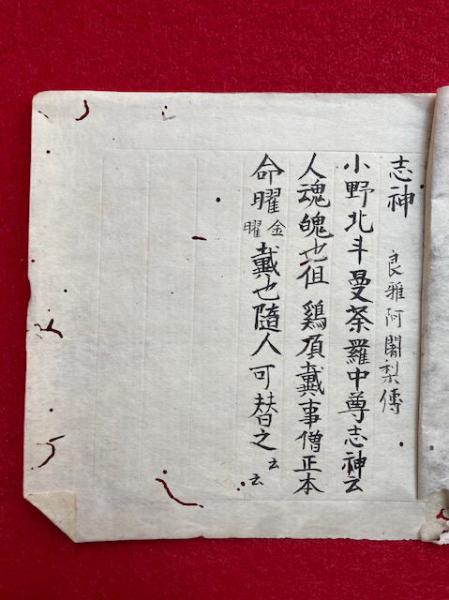 志神 良雅阿闍梨傳
小野北斗曼荼羅中尊志神云
人魂魄也但鷄頂戴事僧正本
命曜金曜戴也隨人可替之云云